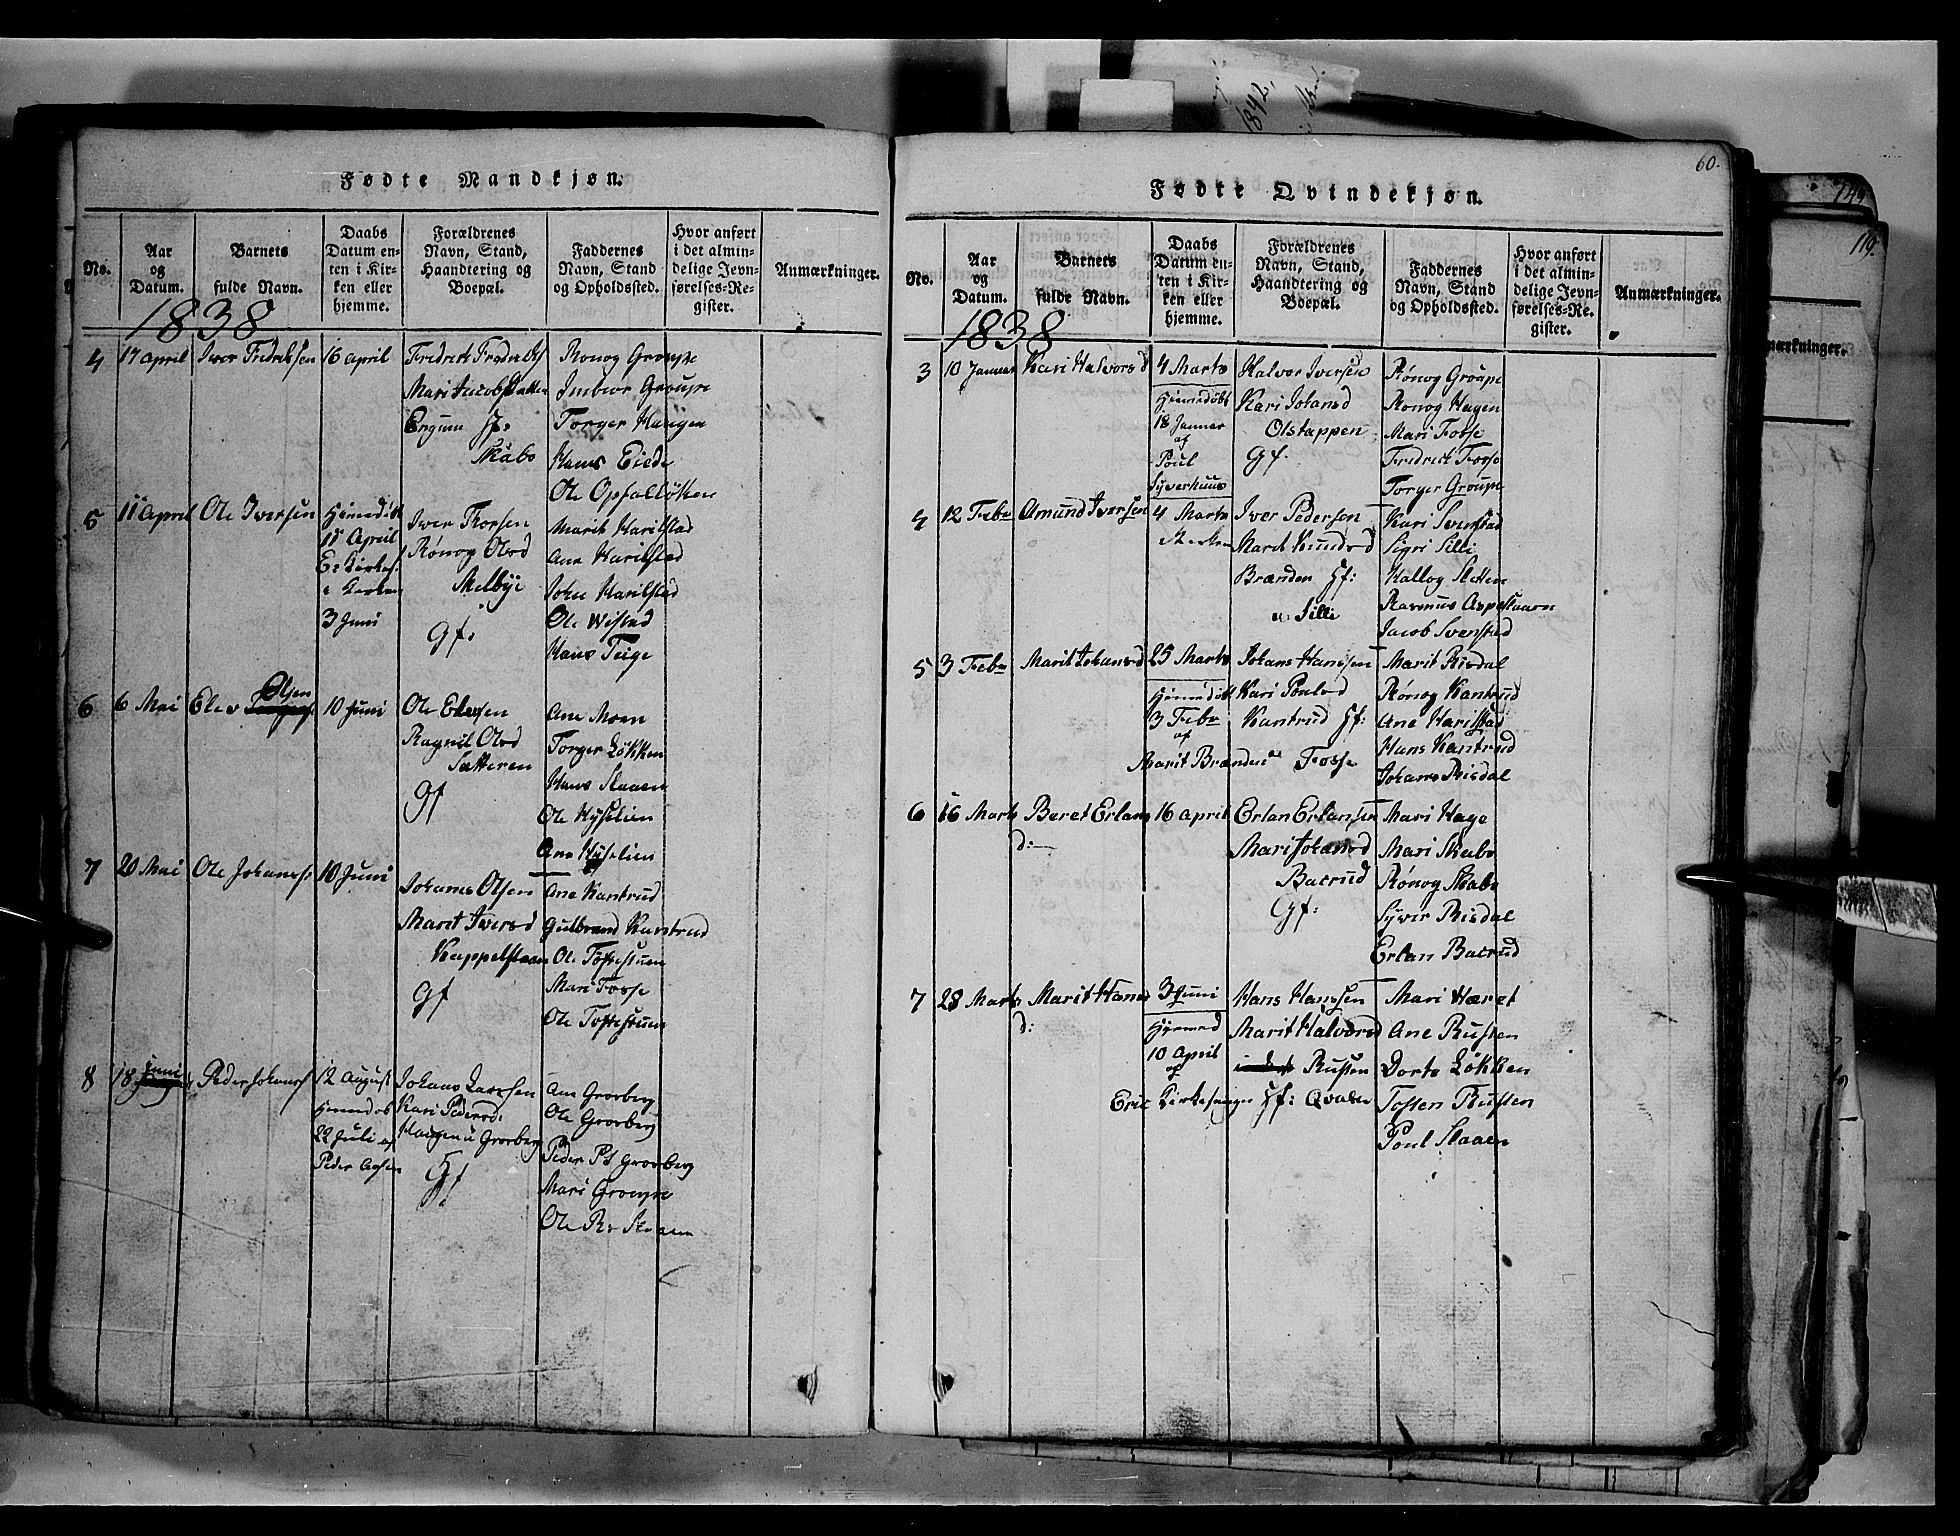 Fødte Mandkjøn.
No.
Aar
og
Datum.
Barnets
fulde Navn.
Daabs
Datum en-
ten i Kir-
ken eller
hjemme.
Forældrenes
Navn, Stand,
Haandtering og
Boepæl.
Faddernes
Navn, Stand
og Opholdssted.
Hvor anført
i det almin-
delige Jevn-
førelses-Re-
gister.
Anmærkninger.
1838
4 17 april Iver Fredriksen 16 april
Fredrick Fredriks
Mari Jacobsdatter
Engum Jf:
Skabo
Ronog Groupe
Imbior Groupe
Torger Haugen
Hans Eide
Ole Opfalløkken
5 11 April Ole Iversen
Hiemedøbt
11 April
i Kirken
3 Juni
Iver Thorsen
Rønog Olsd
Melbye
Gf:
Marit Harilstad
Ane Harilstad
John Harilstad
Ole Wistad
Hans Teige
6 6 Mai Elev Olsen 10 Juni
Ole Elevsen
Ragnil Olsd
Sætteren
Gf
Ane Moen
Torger Løkken
Hans Slaaen
Ole Hyselien
Ane Hyselien
7 20 Mai Ole Johanss: 10 Juni
Johans Olsen
Marit Iversd
Kappelslaaen
Gf
Ane Kantrud
Gulbrand Kantrud
Ole Fossestuen
Mari Fosse
Ole Fossestuen
8 18 Juni Peder Johanss 12 August
Hiemedøb
22 Juli af
Peder
Johans Larsen
Kari Pedersd:
Haugen u Grorberg
Gf
Ane Grorberg
Ole Grorberg
Peder Ps Grorberg
Mari Groupe
Ole Rs Slaaen
60.
Fødte Qvindekjøn.
No.
Aar
og
Datum.
Barnets
fulde Navn.
Daabs
Datum en-
ten i Kir-
ken eller
hjemme.
Forældrenes
Navn, Stand,
Haandtering og
Boepæl.
Faddernes
Navn, Stand
og Opholdssted.
Hvor anført
i det almin-
delige Jevn-
førelses-Re-
gister.
Anmærkninger.
1838
3 10 Januar Kari Halvorsd 4 Marts
Hiemedøbt
18 Januar
af
Poul
Syverhuus
Halvor Iversen
Kari Johansd
Olstappen
Gf.
Rønog Groupe
Ronog Hagen
Mari Fosse
Fredrick Fosse
Torger Groupe
4 12 Febr Amund Iversen 4 Marts
Iver Pedersen
Marit Knudsd
Brænden Hf:
u Silli
Kari Svenstad
Sigri Silli
Hallog Sletten
Rasmus Aspeslaaen
Jacob Svenstad
5 3 Febr Marit Johansd 25 Marts
Hiemedøbt
3 Febr
af
Marit Brænden
Johans Hansen
Kari Poulsd
Kantrud Hf:
Fosse
Marit Risdal
Rønog Kantrud
Ane Harilstad
Hans Kantrud
Johans Risdal
6 16 Marts Beret Erlans
d:
16 april
Erlan Erlansen
Mari Johansd
Bacrud
Gf:
Mari Hage
Mari Skabo
Rønog Skabo
Syver Risdal
Erlan Bacrud
7 28 Marts Marit Hans
d:
3 Juni
Hjemed
10 April
af
Eric Kirkesanger
Hans Hanssen
Marit Halvorsd
Rusten
Hf: Qvalen
Mari Hæret
Ane Rusten
Dorte Løkken
Tosten Rusten
Poul Slaaen
1842,
119.
mærkninger.